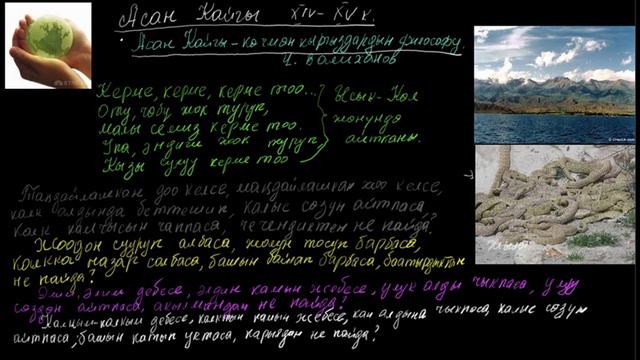 Асан Кайгы XIV - XV к.
• Асан Кайгы - көчмөн кыргыздардын философу.
Ч. Валиханов
Керме, керме, керме тоо...
Оту, чөбү жок туруп,
малы семиз керме тоо.
Упа, эндиги жок туруп,
Кызы сулуу керме тоо
Ысык-Көл
жөнүндө
айтканы.
Таңдайлашкан доо келсе, маңдайлашкан жоо келсе,
калк алдында беттешип, калыс сөзүн айтпаса,
Калк камчысын чаппаса, чечендиктен не пайда?
Жоодон сууруп албаса, жолун тосуп барбаса,
калкка назар салбаса, башын байлап барбаса, баатырдыктан
не пайда?
Элим, элим дебесе, элдин камын жебесе, улук алды чыкпаса, улуу
сөздөн айтпаса, акылмандан не пайда?
Калкым-калкым дебесе, калктын камын жебесе, хан алдына чыкпаса, калыс сөзүн
айтпаса, башын катып жатпаса, карыдан не пайда?